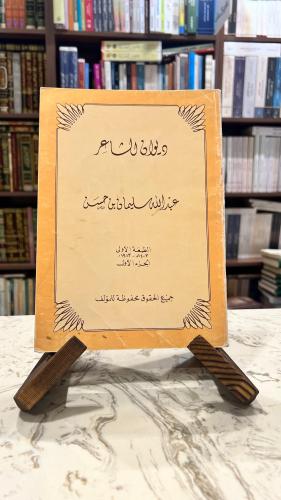 ديوان الشاعر
عبد الله سليمان بن حسن
الطبعة الأولى
١٤٠٣هـ - ١٩٨٣م
الجزء الأول
جميع الحقوق محفوظة للمؤلف